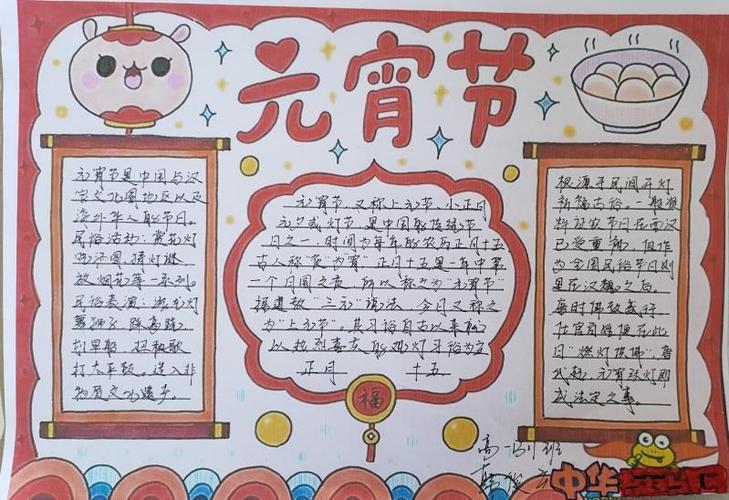 元宵节
元宵节是中国与汉
字文化圈地区以及
海外华人的节日。
民俗活动：赏花灯
吃汤圆、猜灯谜、
放烟花等一系列。
民俗表演：游龙灯
舞狮子、踩高跷、
划旱船、扭秧歌
打太平鼓。选入非
物质文化遗产。
元宵节，又称上元节、小正月
元夕或灯节，是中国的传统节
日之一，时间为每年的农历正月十五
古人称"夜"为"宵"正月十五是一年中第
一个月圆之夜，所以称之为"元宵节"
根据道教"三元"说法，今月又称之
为"上元节"。其习俗自古以来就
以热烈喜庆的观灯习俗为主
正月 十五
福
根源于民间开灯
祈福古俗，一般资
料证实节日在西汉
已受重视，但作
为全国民俗节日则
是在汉魏之后。
每时佛教盛行
仕官百姓便在此
日"燃灯供佛"唐
代起，元宵张灯即
成法定之事。
高一 班
中华